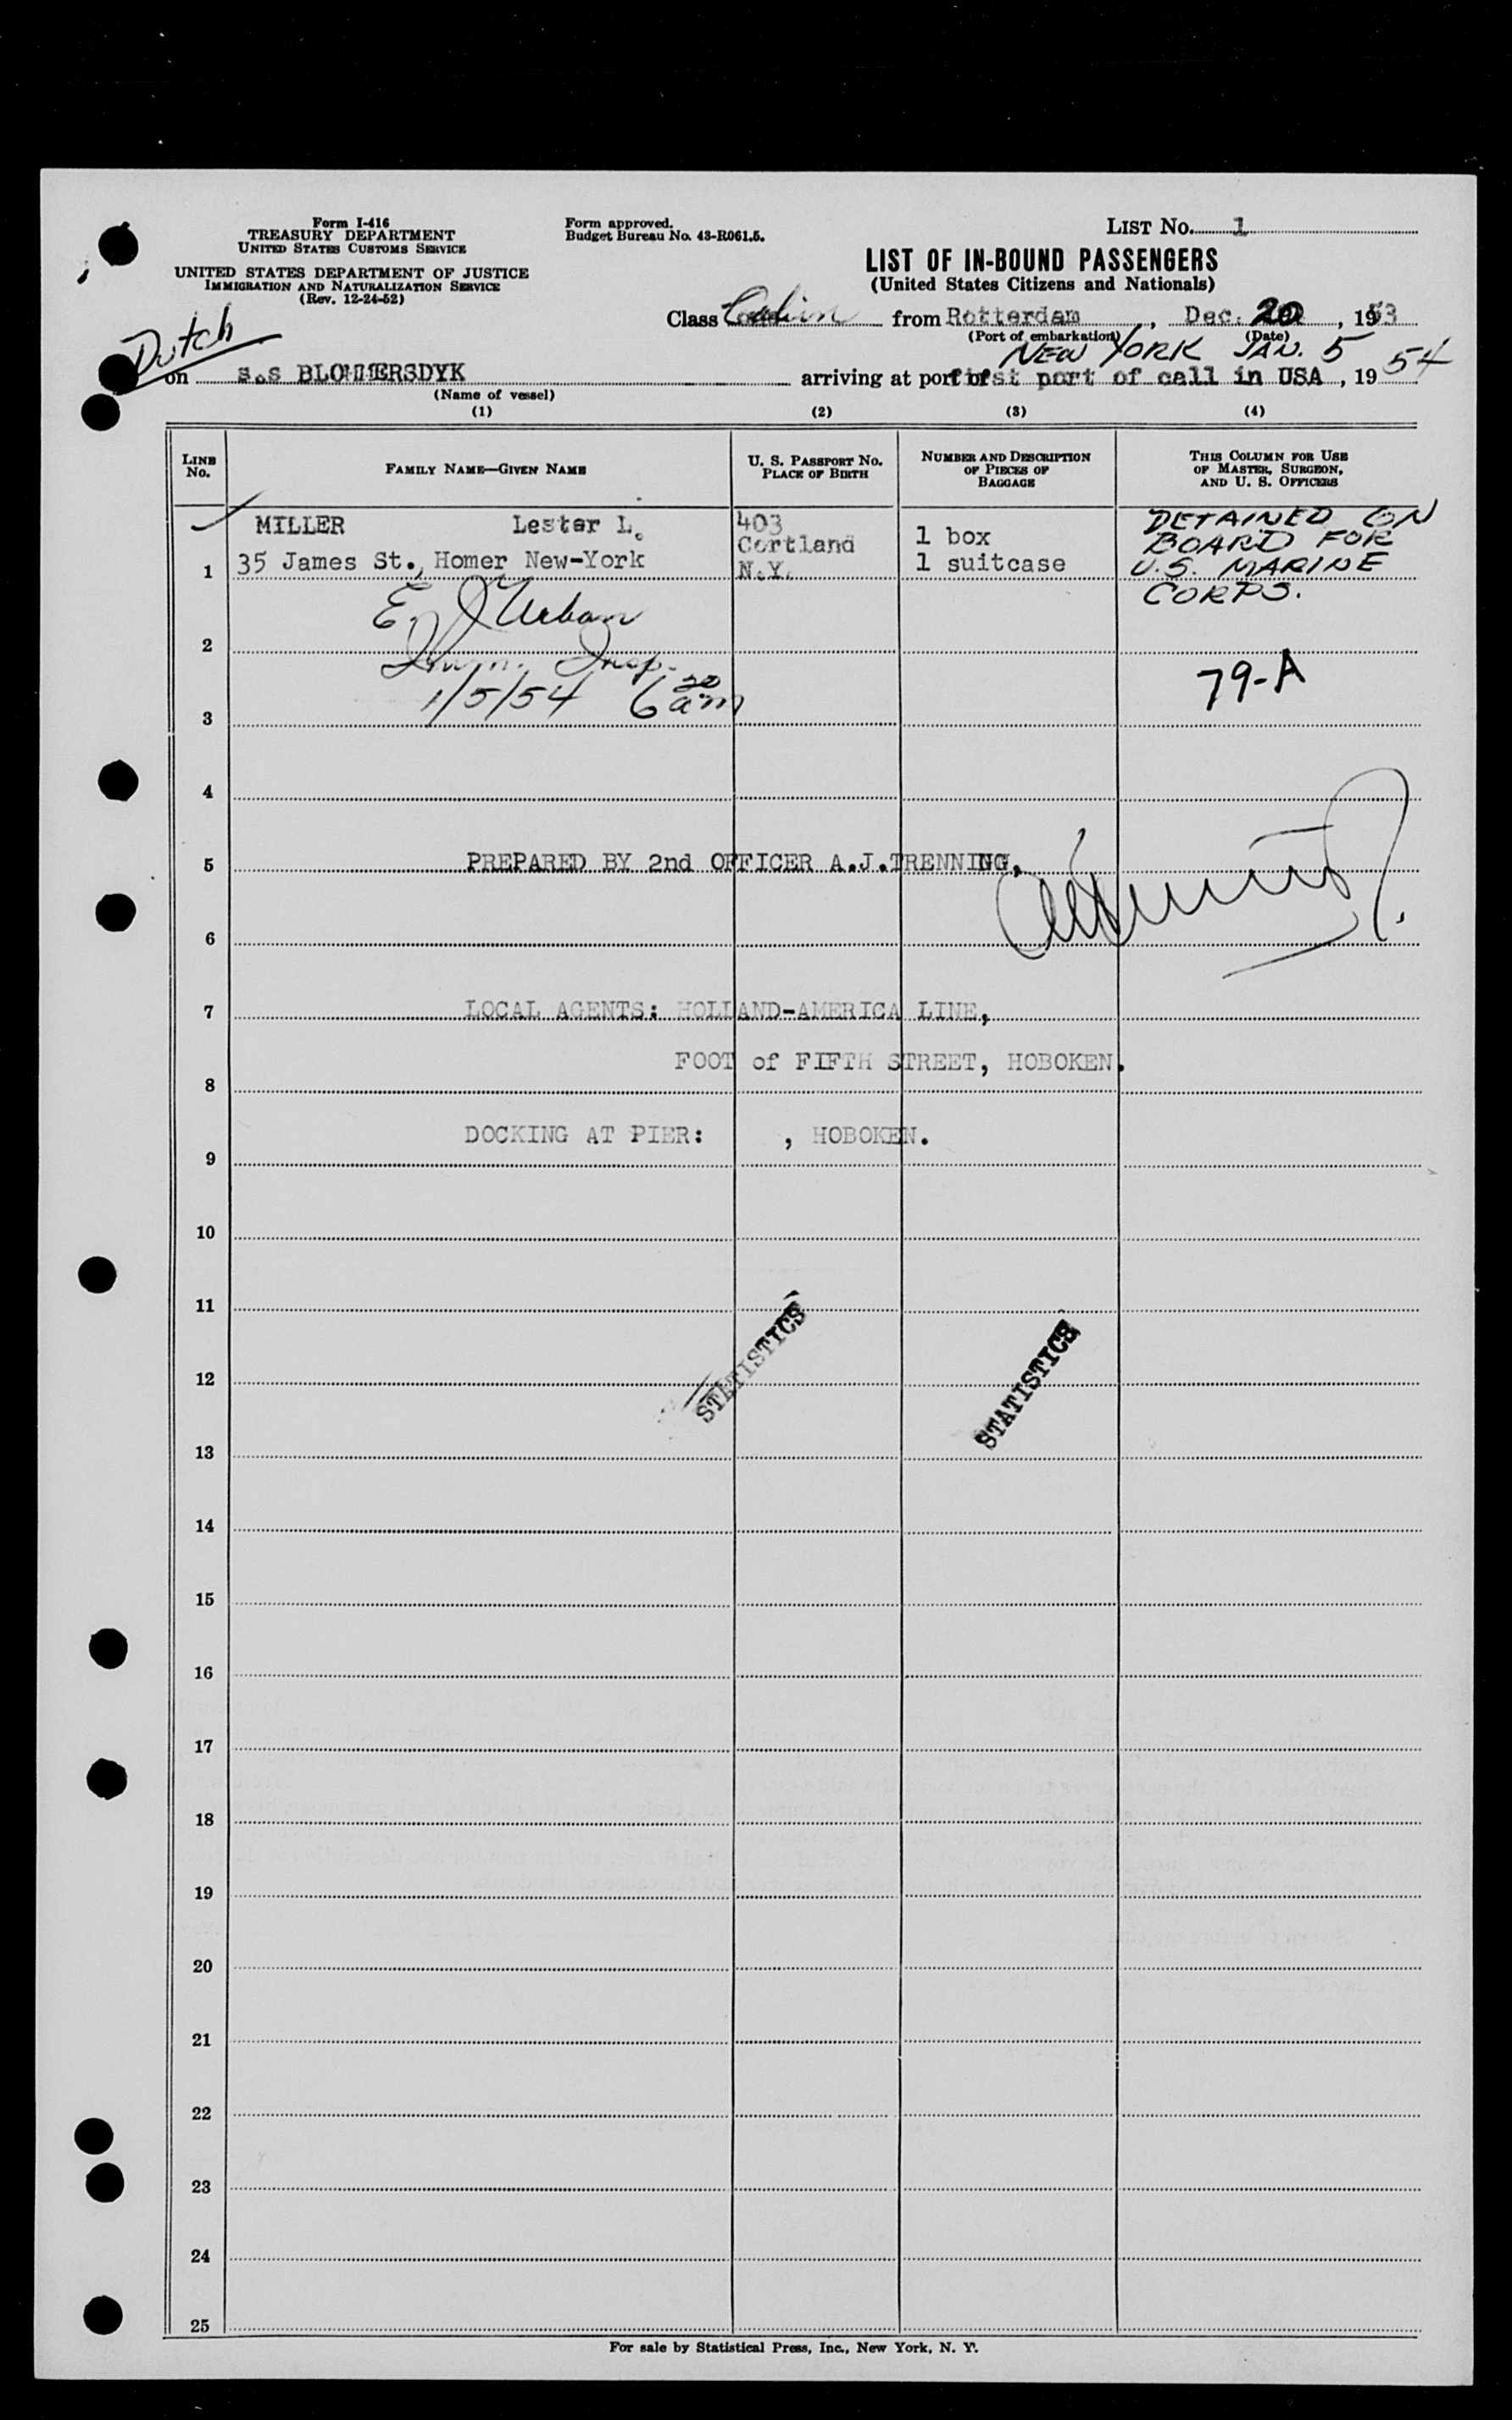 Form I-416
TREASURY DEPARTMENT
UNITED STATES CUSTOMS SERVICE
UNITED STATES DEPARTMENT OF JUSTICE
IMMIGRATION AND NATURALIZATION SERVICE
(Rev. 12-24-52)
Form approved.
Budget Bureau No. 43-R061.5.
LIST No. 1
LIST OF IN-BOUND PASSENGERS
(United States Citizens and Nationals)
Class Cabin from Rotterdam, Dec. 20, 1953
(Port of embarkation) (Date)
Dutch
NEW YORK JAN. 5 54
on s.s BLOMMERSDYK arriving at port of first port of call in USA, 19
(Name of vessel)
(1) (2) (3) (4)
LINE No. FAMILY NAME—GIVEN NAME U. S. PASSPORT No. PLACE OF BIRTH NUMBER AND DESCRIPTION OF PIECES OF BAGGAGE THIS COLUMN FOR USE OF MASTER, SURGEON, AND U. S. OFFICERS
MILLER Lester L. 403 1 box DETAINED ON
35 James St., Homer New-York Cortland 1 suitcase BOARD FOR
1 N.Y. U.S. MARINE
CORPS.
E. J Urban
2
Imm. Insp.
79-A
1/5/54 6 30 am
3
4
5 PREPARED BY 2nd OFFICER A.J.TRENNING,
6
7 LOCAL AGENTS: HOLLAND-AMERICA LINE,
FOOT of FIFTH STREET, HOBOKEN.
8
DOCKING AT PIER: , HOBOKEN.
9
10
11
STATISTICS STATISTICS
12
13
14
15
16
17
18
19
20
21
22
23
24
25
For sale by Statistical Press, Inc., New York, N. Y.